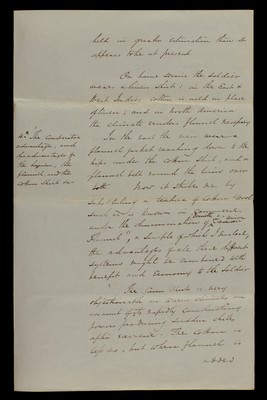 held in greater estimation than it
appears to be at present
On home service the Soldier
wears a linen shirt; in the East &
West Indies cotton is used in place
of linen; and in North America
the climate renders flannel necessary
In the East the men wear a
flannel jacket reaching down to the
hips under the Cotton Shirt, and a
flannel belt round the loins over
both
Now it strikes me by
substituting a texture of Cotton & Wool
such as is known in
under the denomination of
Flannel", a sample of which I enclose,
the advantages of all these different
systems might be combined with
benefit and Economy to the Soldier
The linen shirt is very
objectionable in warm climates on
account of its rapidly conducting
power producing sudden chills
after exercise. The Cotton is
less so, but where flannel is
added
4th The Comparative
advantages, and
disadvantages of
the linen, the
flannel, and the
cotton shirt